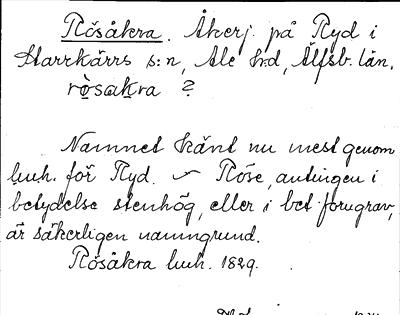 Rösåkra. Åkerj. på Ryd i
Starrkärrs s:n, Ale h:d, Älfsb. län.
rò̱sakra ?
Namnet känt nu mest genom
luuh. för Ryd. — Röse, antingen i
betydelse stenhög, eller i bet forngrav,
är säkerligen namngrund.
Rösåkra luuh. 1829.